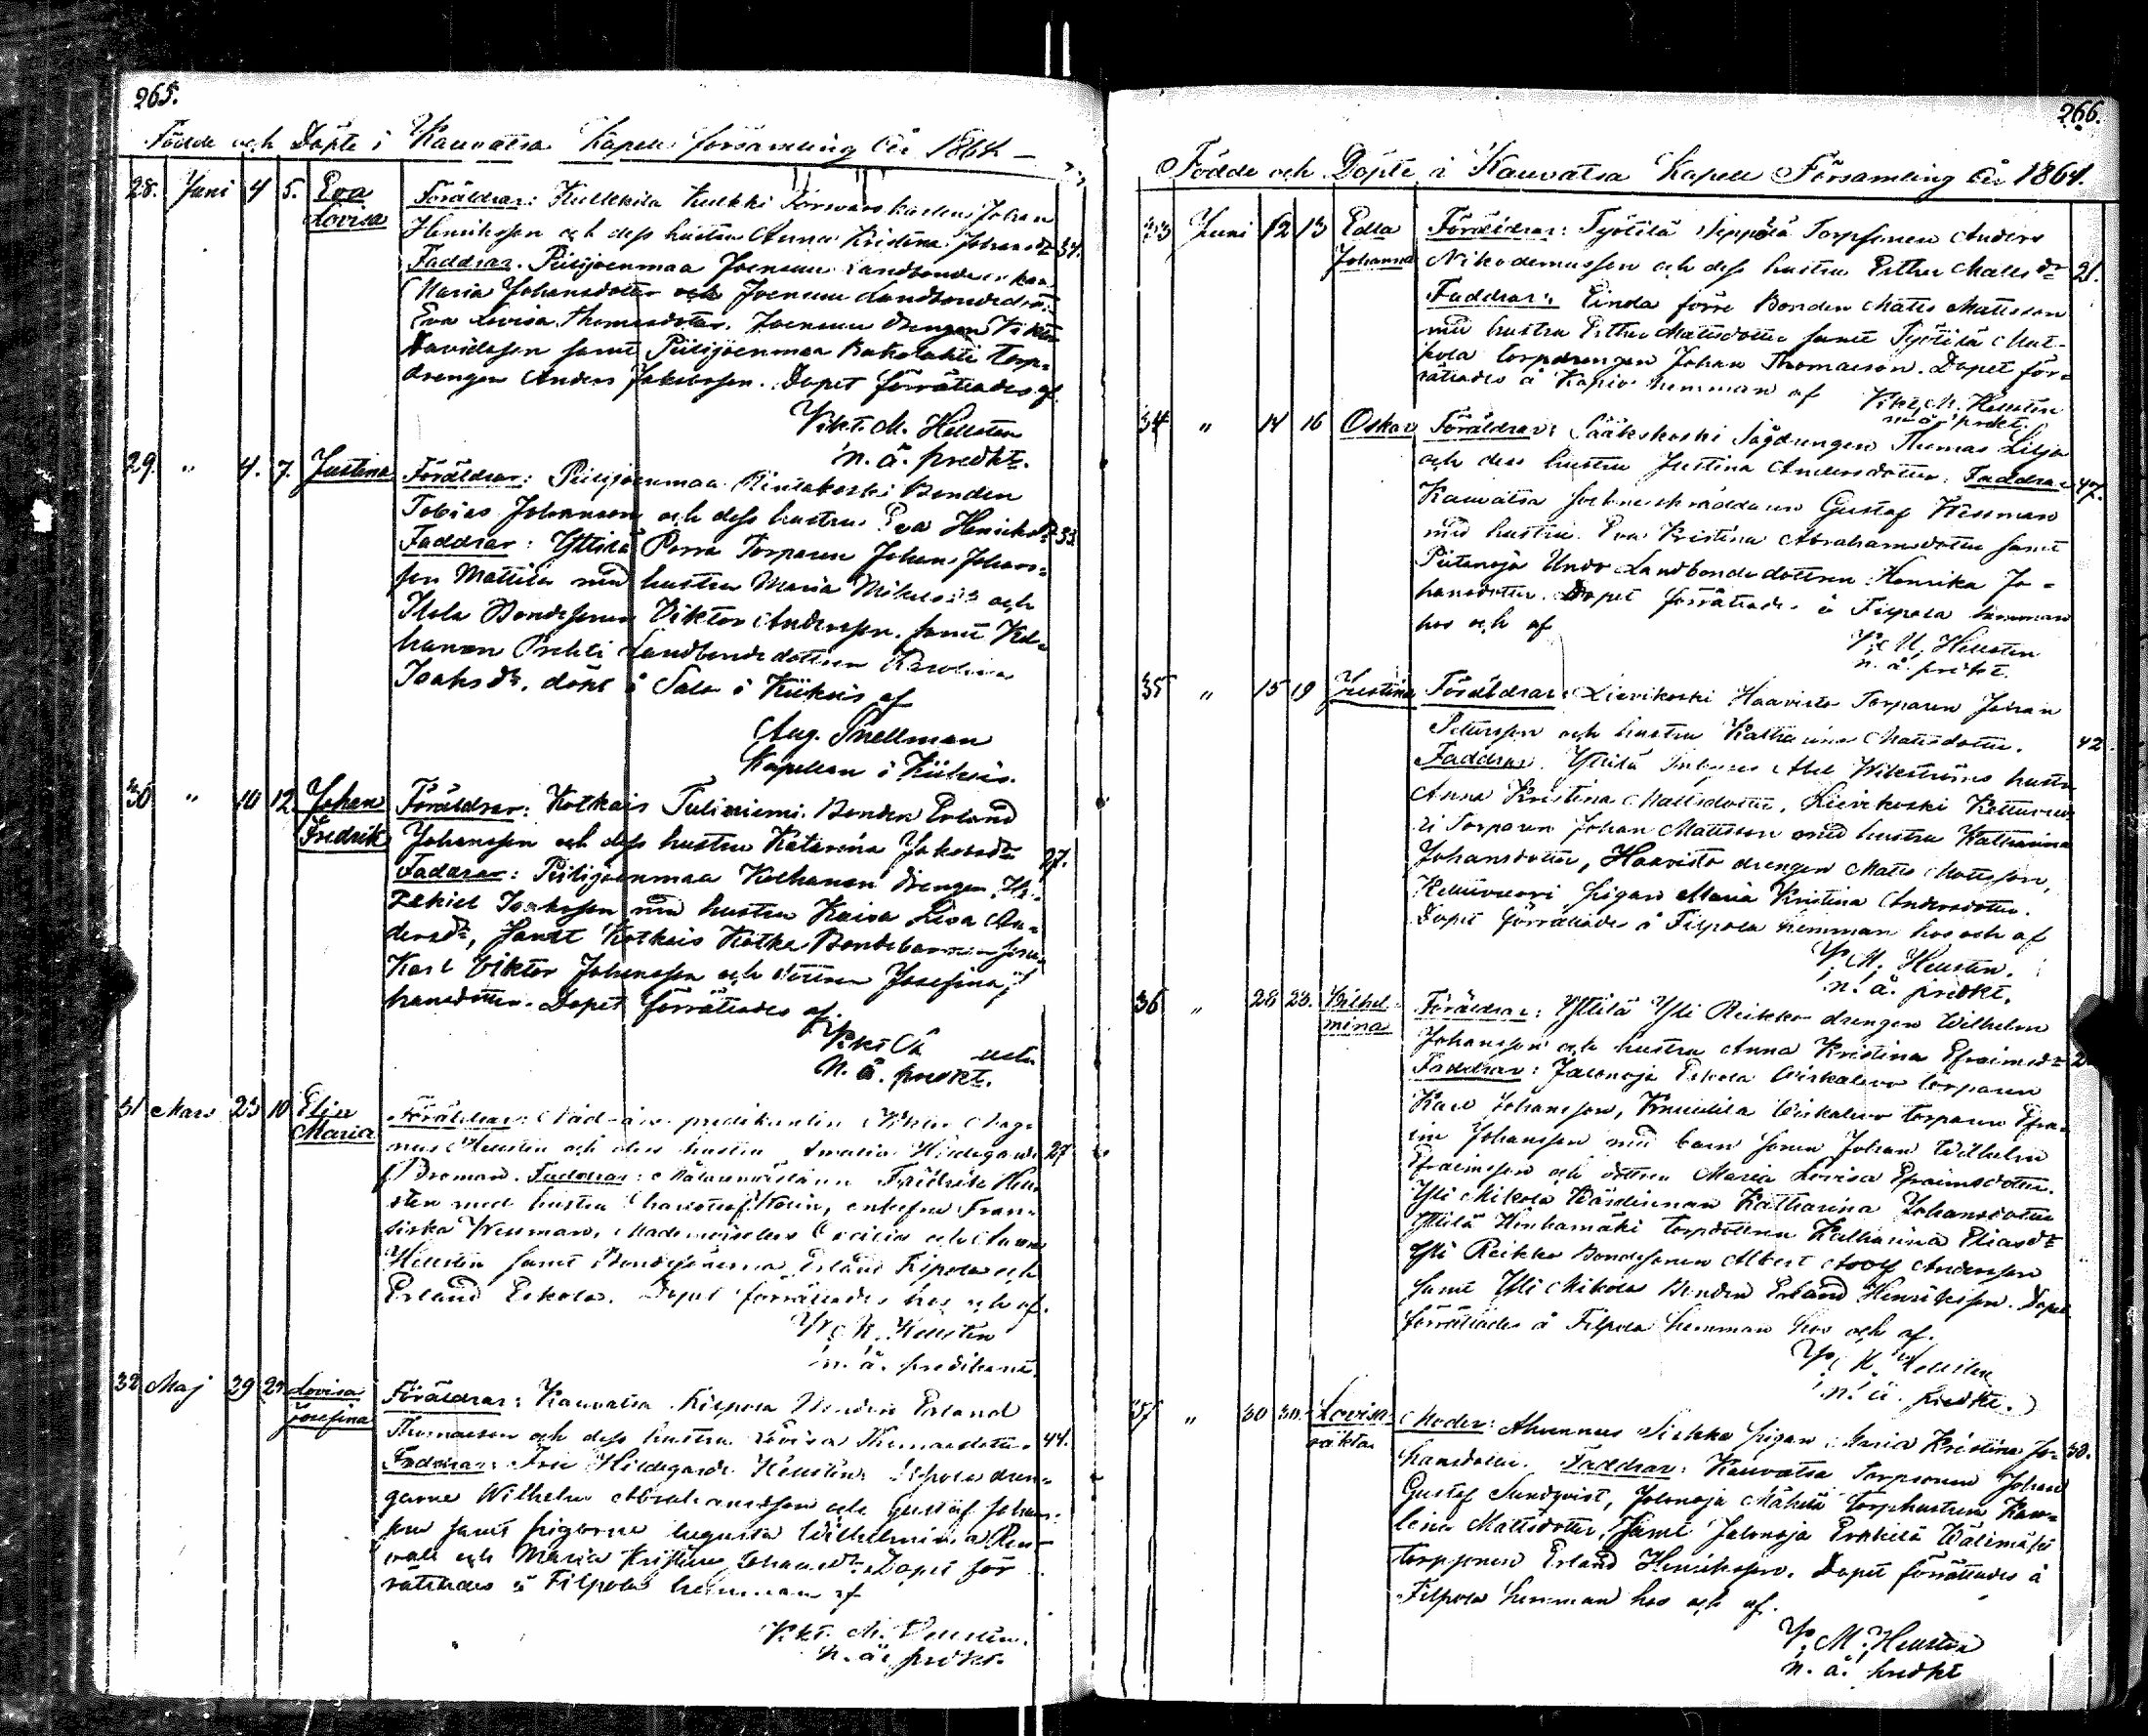 265.
Födde och Döpte i Kauvatsa Kapell församling År 1864
28. Juni 4 5. Eva Lovisa
Föräldrar: Kulkkila Kulkki Johan
Henriksson och dess hustru Anna Kristina Johansdr 34.
Faddrar. Piilijoenmaa Joensuu Landbonde
Maria Johansdotter och Joensuu Landbonded:
Eva Lovisa Thomasdotter. Joensuu Drengen Viktor
Davidsson samt Piilijoenmaa torp-
drengen Anders Jakobsson. Dopet förrättades af
Vikt. M. Hellsten
n. å. predkt.
29. " 4. 7. Justina
Föräldrar: Piilijoenmaa Rintakoski Bonden
Tobias Johansson och dess hustru Eva Henriksdr 33
Faddrar: Yttilä Porra Torparen Johan Johans-
son Mattila med hustru Maria och
Bondesonen Viktor Andersson samt Kel-
hanen Prehti Landbondedottren Karolina
Isaksdr. döpt i Salo i Kiikois af
Aug. Snellman
Kapellan i Kiikois.
30 " 10 12 Johan Fredrik
Föräldrar: Kotkais Tuliniemi Bonden Erland
Johansson och dess hustru Katarina Jakobsdr 27.
Faddrar: Piilijoenmaa Kelhanen Drengen He-
zekiel Isaksson med hustru Kaisa Lisa An-
dersdr, samt Kotkais Kotka Bondebarnen sonen
Karl Viktor Johansson och dottren Josefina Jo-
hansdotter. Dopet förrättades af
n. å. predkt.
31 Mars 23 10 Elin Maria
Föräldrar: Nåd-års predikanten Viktor Mag-
nus Hellsten och dess hustru Amalia Hildegard 27
Broman. Faddrar: Fredrik Hell-
sten med hustru enkefru Fran-
siska Wessman, Mademoisellerna Cecilia och
Hellsten samt Bondesönerna Erland Filpola och
Erland Eskola. Dopet förrättades hos och af.
V. M. Hellsten
n. å. predikant.
32 Maj 29 29. Lovisa Josefina
Föräldrar: Kauvatsa Filpola Bonden Erland
Thomasson och dess hustru Lovisa Thomasdotter 44.
Faddrar: Fru Hildegard Hellsten, Filpola dren-
garne Wilhelm Abrahamsson och Gustaf Johans-
son samt pigorne Augusta Wilhelmina Ren-
vall och Maria Kristina Johansdr. Dopet för-
rättades å Filpola hemman af
Vikt. M. Hellsten.
n. å. predkt.
266.
Födde och Döpte i Kauvatsa Kapell Församling År 1864.
33 Juni 12 13 Edla Johanna
Föräldrar: Työtilä Seppälä Torpsonen Anders
Nikodemusson och dess hustru Esther Mattsdr 21.
Faddrar: Einda förre Bonden Matts Mattsson
med hustru Esther Mattsdotter samt Työtilä Mat-
kola torpdrengen Johan Thomasson. Dopet för-
rättades å hemman af Vikt. M. Hellsten
n. å. predkt.
34 " 14 16 Oskar
Föräldrar: Sääkskoski Sågdrengen Thomas Lilja
och dess hustru Justina Andersdotter. Faddrar 47.
Kauvatsa Sockneskräddaren Gustaf Wessman
med hustru Eva Kristina Abrahamsdotter samt
Piitanoja Landbondedottren Henrika Jo-
hansdotter. Dopet förrättades å Filpola hemman
hos och af
V. M. Hellsten
n. å. predkt.
35 " 15 19 Justina
Föräldrar: Lievikoski Haavisto Torparen Johan
Pettersson och hustru Katharina Mattsdotter. 42.
Faddrar. Yttilä Abel Wikströms hustru
Anna Kristina Mattsdotter, Lievikoski Kettuvuo-
ri Torparen Johan Mattsson med hustru Katharina
Johansdotter, Haavisto drengen Matts Mattsson,
Kettuvuori Pigan Maria Kristina Andersdotter.
Dopet förrättades å Filpola hemman hos och af
V. M. Hellsten.
n. å. predkt.
36 " 28 28. Wilhel-mina
Föräldrar: Yttilä Yli Reikko drengen Wilhelm
Johansson och hustru Anna Kristina Efraimsdr
Faddrar: Jalonoja Eskola torparen
Karl Johansson, torparen Efra-
im Johansson med barn sonen Johan Wilhelm
Efraimsson och dottren Maria Lovisa Efraimsdotter.
Yli Mikola Värdinnan Katharina Johansdotter
Yttilä torpdottren Katharina Eliasdr
Yli Reikko Bondesonen Albert Adolf Andersson
samt Yli Mikola Bonden Erland Henriksson. Dopet
förrättades å Filpola hemman hos och af.
V. M. Hellsten
n. å. predkt.
37 " 30 30. Lovisa oäkta
Moder: Ahvenus Sikka Pigan Maria Kristina Jo- 30.
hansdotter. Faddrar: Kauvatsa Torpsonen Johan
Gustaf Sundqvist, Jalonoja Mäkelä torphustrun Karo-
lina Mattsdotter, samt Jalonoja Välimäki
torpsonen Erland Henriksson. Dopet förrättades å
Filpola hemman hos och af.
V. M. Hellsten
n. å. predkt